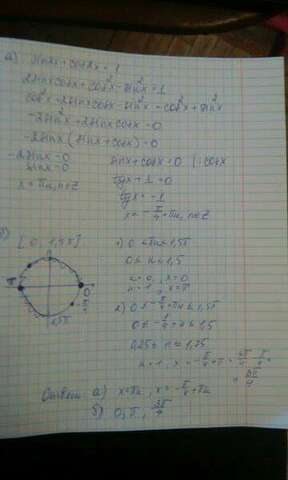 а) sin2x+cos2x=1
2sinxcosx+cos²x-sin²x=1
cos²x+2sinxcosx-sin²x=cos²x+sin²x
-2sin²x+2sinxcosx=0
-2sinx(sinx+cosx)=0
-2sinx=0 sinx+cosx=0 |:cosx
sinx=0 tgx+1=0
x=πn, n∈Z tgx=-1
x=-π/4+πn, n∈Z
[0; 1,5π] 1) 0≤πn≤1,5π
0≤n≤1,5
n=0, x=0
π 0 n=1, x=π
2) 0≤-π/4+πn≤1,5π
1,5π 0≤-1/4+n≤1,5
0,25≤n≤1,75
n=1, x=-π/4+π=
=3π/4
Ответ: а) x=πn, x=-π/4+πn
б) 0, π, 3π/4